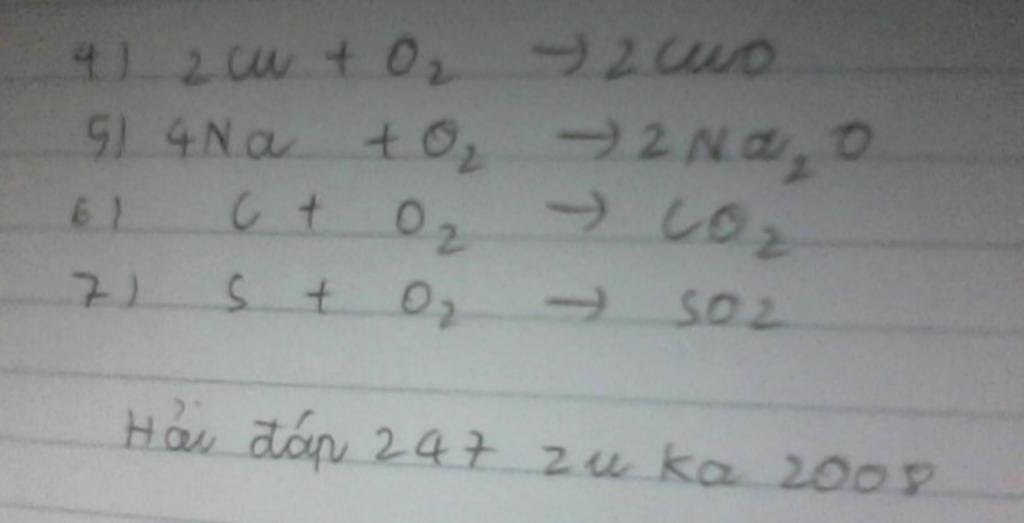 4) 2Cu + O₂ → 2CuO
5) 4Na + O₂ → 2Na₂O
6) C + O₂ → CO₂
7) S + O₂ → SO2
Hỏi đáp 247 zu ka 2008